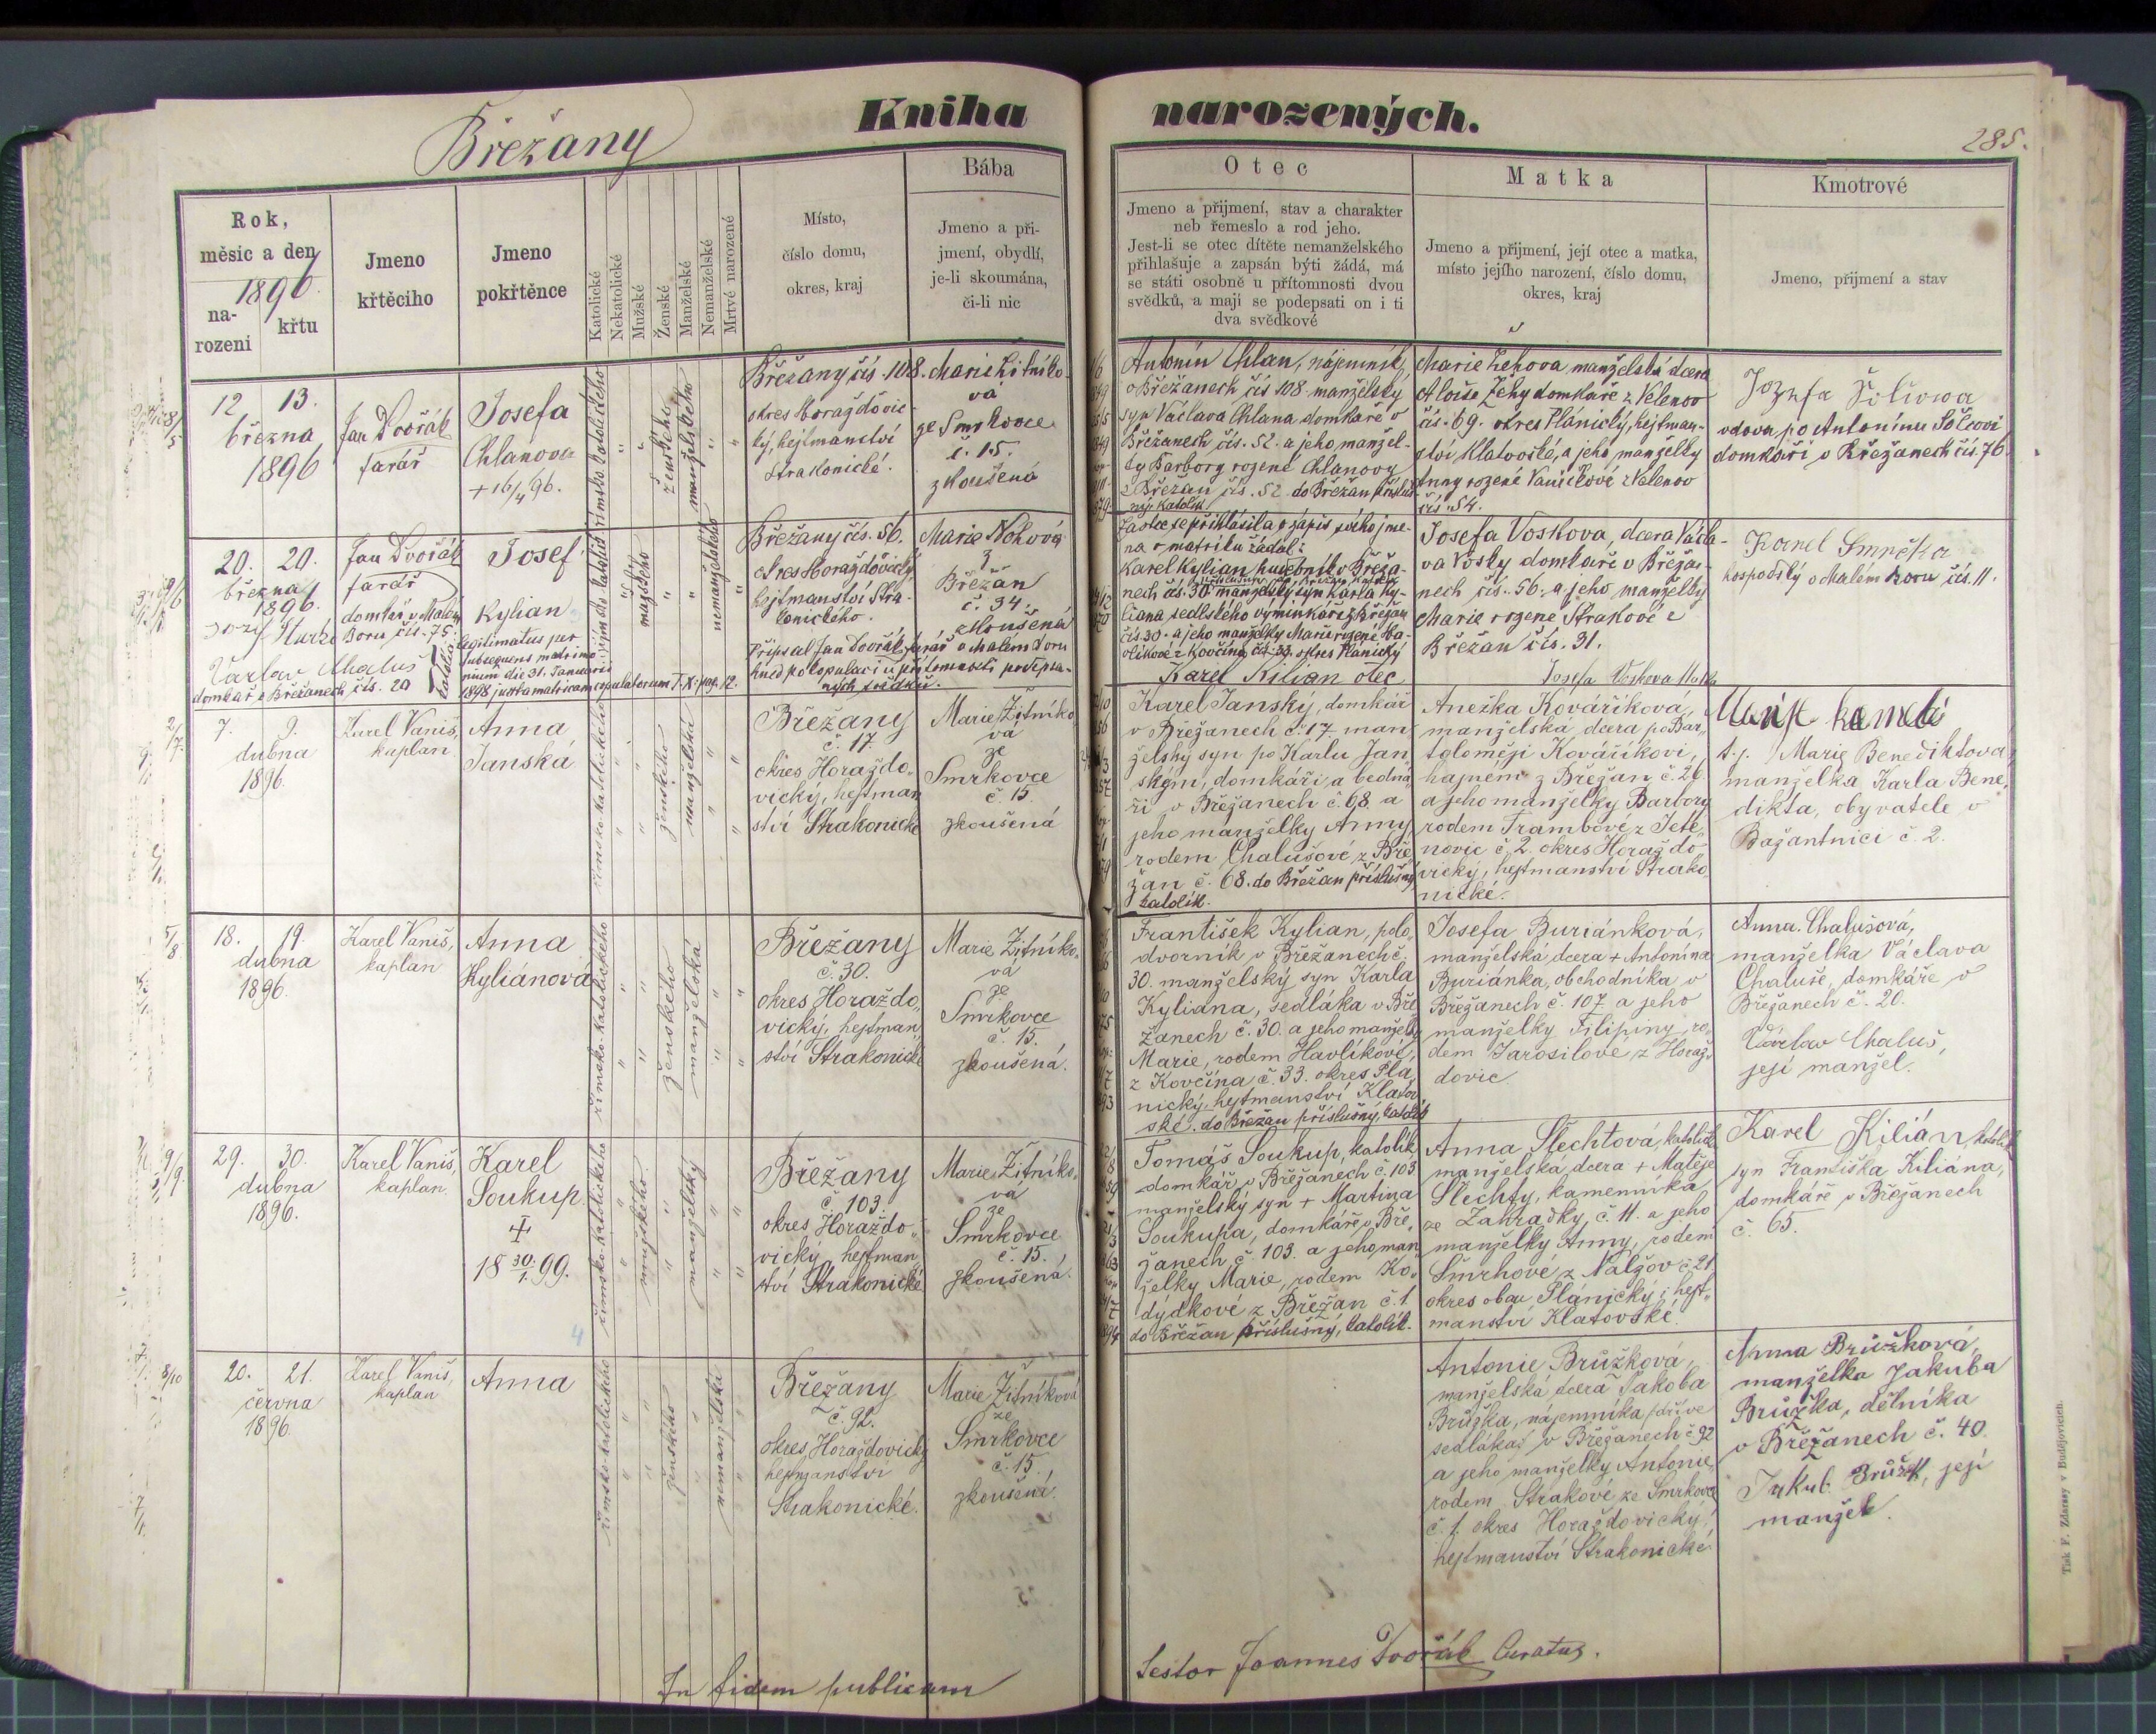 Břežany
Kniha
narozených.
285.
Rok,
měsíc a den
1896
na-
rození
křtu
Jmeno
křtěcího
Jmeno
pokřtěnce
Katolické
Nekatolické
Mužské
Ženské
Manželské
Nemanželské
Mrtvé narozené
Místo,
číslo domu,
okres, kraj
Bába
Jmeno a při-
jmení, obydlí,
je-li skoumána,
či-li nic
Otec
Jmeno a přijmení, stav a charakter
neb řemeslo a rod jeho.
Jest-li se otec dítěte nemanželského
přihlašuje a zapsán býti žádá, má
se státi osobně u přítomnosti dvou
svědků, a mají se podepsati on i ti
dva svědkové
Matka
Jmeno a přijmení, její otec a matka,
místo jejího narození, číslo domu,
okres, kraj
Kmotrové
Jmeno, přijmení a stav
12 13.
března
1896
Jan Dvořák
farář
Josefa
Chlanova
+16/4 96.
římsko katolického
ženského
manželského
Břežany čís. 108.
okres Horažďovic-
ký, hejtmanství
Strakonické.
Marie Žitníko-
vá
ze Smrkovce
č. 15.
zkoušená
Antonín Chlan, nájemník
v Břežanech čís 108. manželský
syn Václava Chlana domkaře v
Břežanech čís. 52. a jeho manžel-
ky Barbory rozené Chlanovy
z Břežan čís. 52. do Břežan příslu
ný, katolík
Marie Žehova manželská dcera
Aloise Žehy domkaře z Velenov
čís. 69. okres Plánický, hejtman-
ství Klatovské, a jeho manželky
Anny rozené Vaníčkové z Velenov
čís. 54.
vdova po Antonínu
domkáři v Břežanech čís. 76.
20. 20.
března
1896.
Jan Dvořák
farář
Josef
Kylian
domkář v Malém
Boru čís. 75.
Václav Chaluš
domkař v Břežanech čís. 20
legitimatus per
subsequens matrimo-
nium die 31. Januarii
1898 juxta matricam copulatorum T. X. pag. 12.
mužského
nemanželského
Břežany čís. 56.
okres Horažďovický
hejtmanství Stra-
konického.
Marie Nohová
z
Břežan
č. 34.
zkoušená
Připsal Jan Dvořák farář v Malém Boru
hned po kopulaci u přítomnosti podepsa-
ných svědků.
Za otce se přihlásil a o zápis svého jme-
na v matriku žádal:
Karel Kylian hudebník v Břeža-
nech čís. 30 manželský syn Karla Ky-
liana sedlského výminkáře z Břežan
čís. 30. a jeho manželky Marie rozené Ha-
vlíkové z Kovčína čís. 33. okres Plánický
Karel Kilian otec
Josefa Voskova, dcera Václa-
va Vosky domkaře v Břeža-
nech čís. 56. a jeho manželky
Marie rozené Strakové z
Břežan čís. 31.
Josefa Voskova Matka
Karel Smrčka
hospodský v Malém Boru čís. 11.
7. 9.
dubna
1896.
Karel Vaniš,
kaplan
Anna
Janská
římsko-katolického
ženského
manželská
Břežany
č. 17.
okres Horaždo-
vický, hejtman
ství Strakonické
Marie Žitníko
vá
ze
Smrkovce
č. 15.
zkoušená
Karel Janský, domkář
v Břežanech č. 17. man
želský syn po Karlu Jan
ským, domkáři a bedná
ři v Břežanech č. 68. a
jeho manželky Anny
rodem Chalušové z Bře
žan č. 68. do Břežan příslušný
katolík.
Anežka Kováříková,
manželská dcera po Bar-
toloměji Kováříkovi,
hajném z Břežan č. 26.
a jeho manželky Barbory
rodem Trambové z Jete-
novic č. 2. okres Horaždo-
vický, hejtmanství Strako-
nické.
t. j. Marie Benediktova,
manželka Karla Bene-
dikta, obyvatele v
Bažantnici č. 2.
18. 19.
dubna
1896.
Karel Vaniš,
kaplan
Anna
Kyliánová
římsko-katolického
ženského
manželská
Břežany
č. 30.
okres Horaždo-
vický, hejtman
ství Strakonické
Marie Žitníko-
vá
ze
Smrkovce
č. 15.
zkoušená.
František Kylian, polo-
dvorník v Břežanech č.
30. manželský syn Karla
Kyliana, sedláka v Bře-
žanech č. 30. a jeho manželky
Marie, rodem Havlíkové,
z Kovčína č. 33. okres Plá
nický, hejtmanství Klatov
ské. do Břežan příslušný, katolík
Josefa Buriánková,
manželská dcera + Antonína
Buriánka, obchodníka v
Břežanech č. 107 a jeho
manželky Filipiny, ro-
dem Jarosilové z Horaž-
dovic
Anna Chalušová,
manželka Václava
Chaluše, domkáře v
Břežanech č. 20.
Václav Chaluš,
její manžel.
29. 30.
dubna
1896.
Karel Vaniš,
kaplan.
Karel
Soukup.
+
18 30/1. 99.
římsko-katolického
mužského
manželský
Břežany
č. 103.
okres Horaždo-
vický, hejtman
ství Strakonické
Marie Žitníko-
vá
ze
Smrkovce
č. 15.
zkoušená.
Tomáš Soukup, katolík,
domkář v Břežanech č. 103
manželský syn + Martina
Soukupa, domkáře v Bře-
žanech č. 103. a jeho man
želky Marie, rodem Ko-
dýdkové z Břežan č. 1.
do Břežan příslušný, katolík.
Anna Šlechtová, katolička
manželská dcera + Matěje
Šlechty, kamenníka
ze Zahrádky č. 11. a jeho
manželky Anny, rodem
Smrhové z Nalžov č 21.
okres obau Plánický i hejt-
manství Klatovské.
Karel Kilián, katolík
syn Františka Kiliána,
domkáře v Břežanech
č. 65.
20. 21.
června
1896.
Karel Vaniš,
kaplan
Anna
římsko-katolického
ženského
nemanželská
Břežany
č. 92.
okres Horažďovický
hejtmanství
Strakonické.
Marie Žitníková
ze
Smrkovce
č. 15.
zkoušená.
Antonie Brůžková,
manželská dcera Jakoba
Brůžka, nájemníka (dříve
sedláka) v Břežanech č 92
a jeho manželky Antonie,
rodem Strakové ze Smrkovce
č. 1. okres Horažďovický,
hejtmanství Strakonické.
Anna Brůžková,
manželka Jakuba
Brůžka, dělníka
v Břežanech č. 40.
Jakub Brůžek, její
manžel.
In fidem publicam
Testor Joannes Dvořák Curatus.
Tisk F. Zdarssy v Budějovicích.